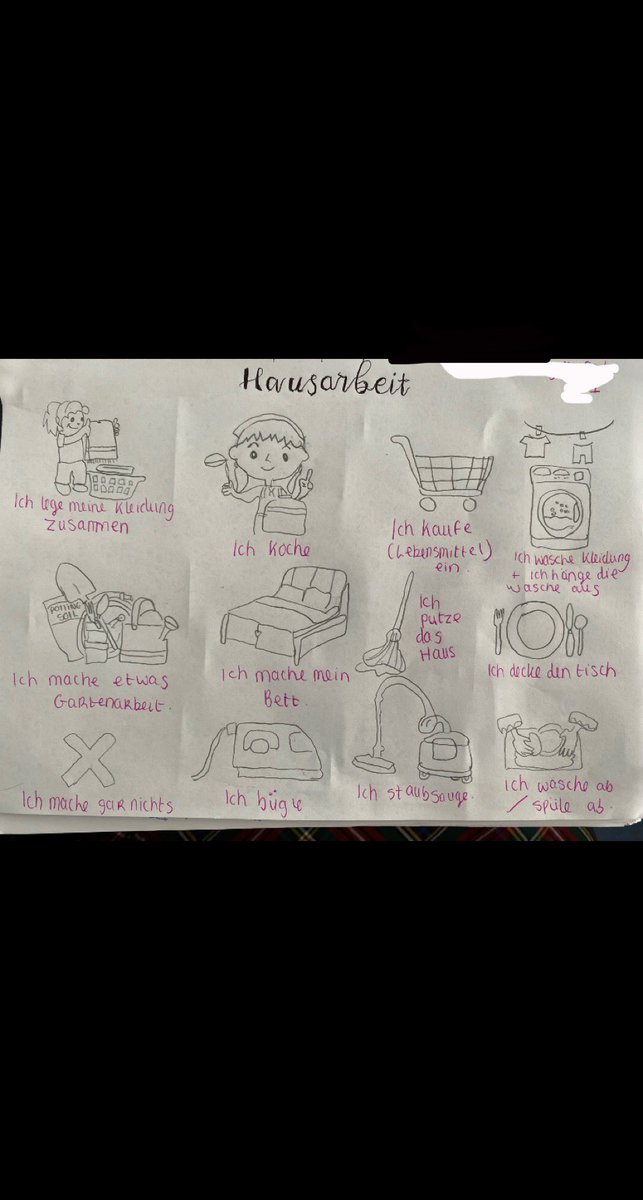 Hausarbeit
Ich lege meine Kleidung
zusammen
Ich koche
Ich kaufe
(Lebensmittel)
ein.
Ich wasche Kleidung
+ ich hänge die
wasche aus
POTTING
SOIL
Ich mache etwas
Gartenarbeit.
Ich mache mein
Bett.
Ich
putze
das
Haus
Ich decke den tisch
Ich mache gar nichts
Ich bügle
Ich staubsauge.
Ich wasche ab
/ spüle ab.